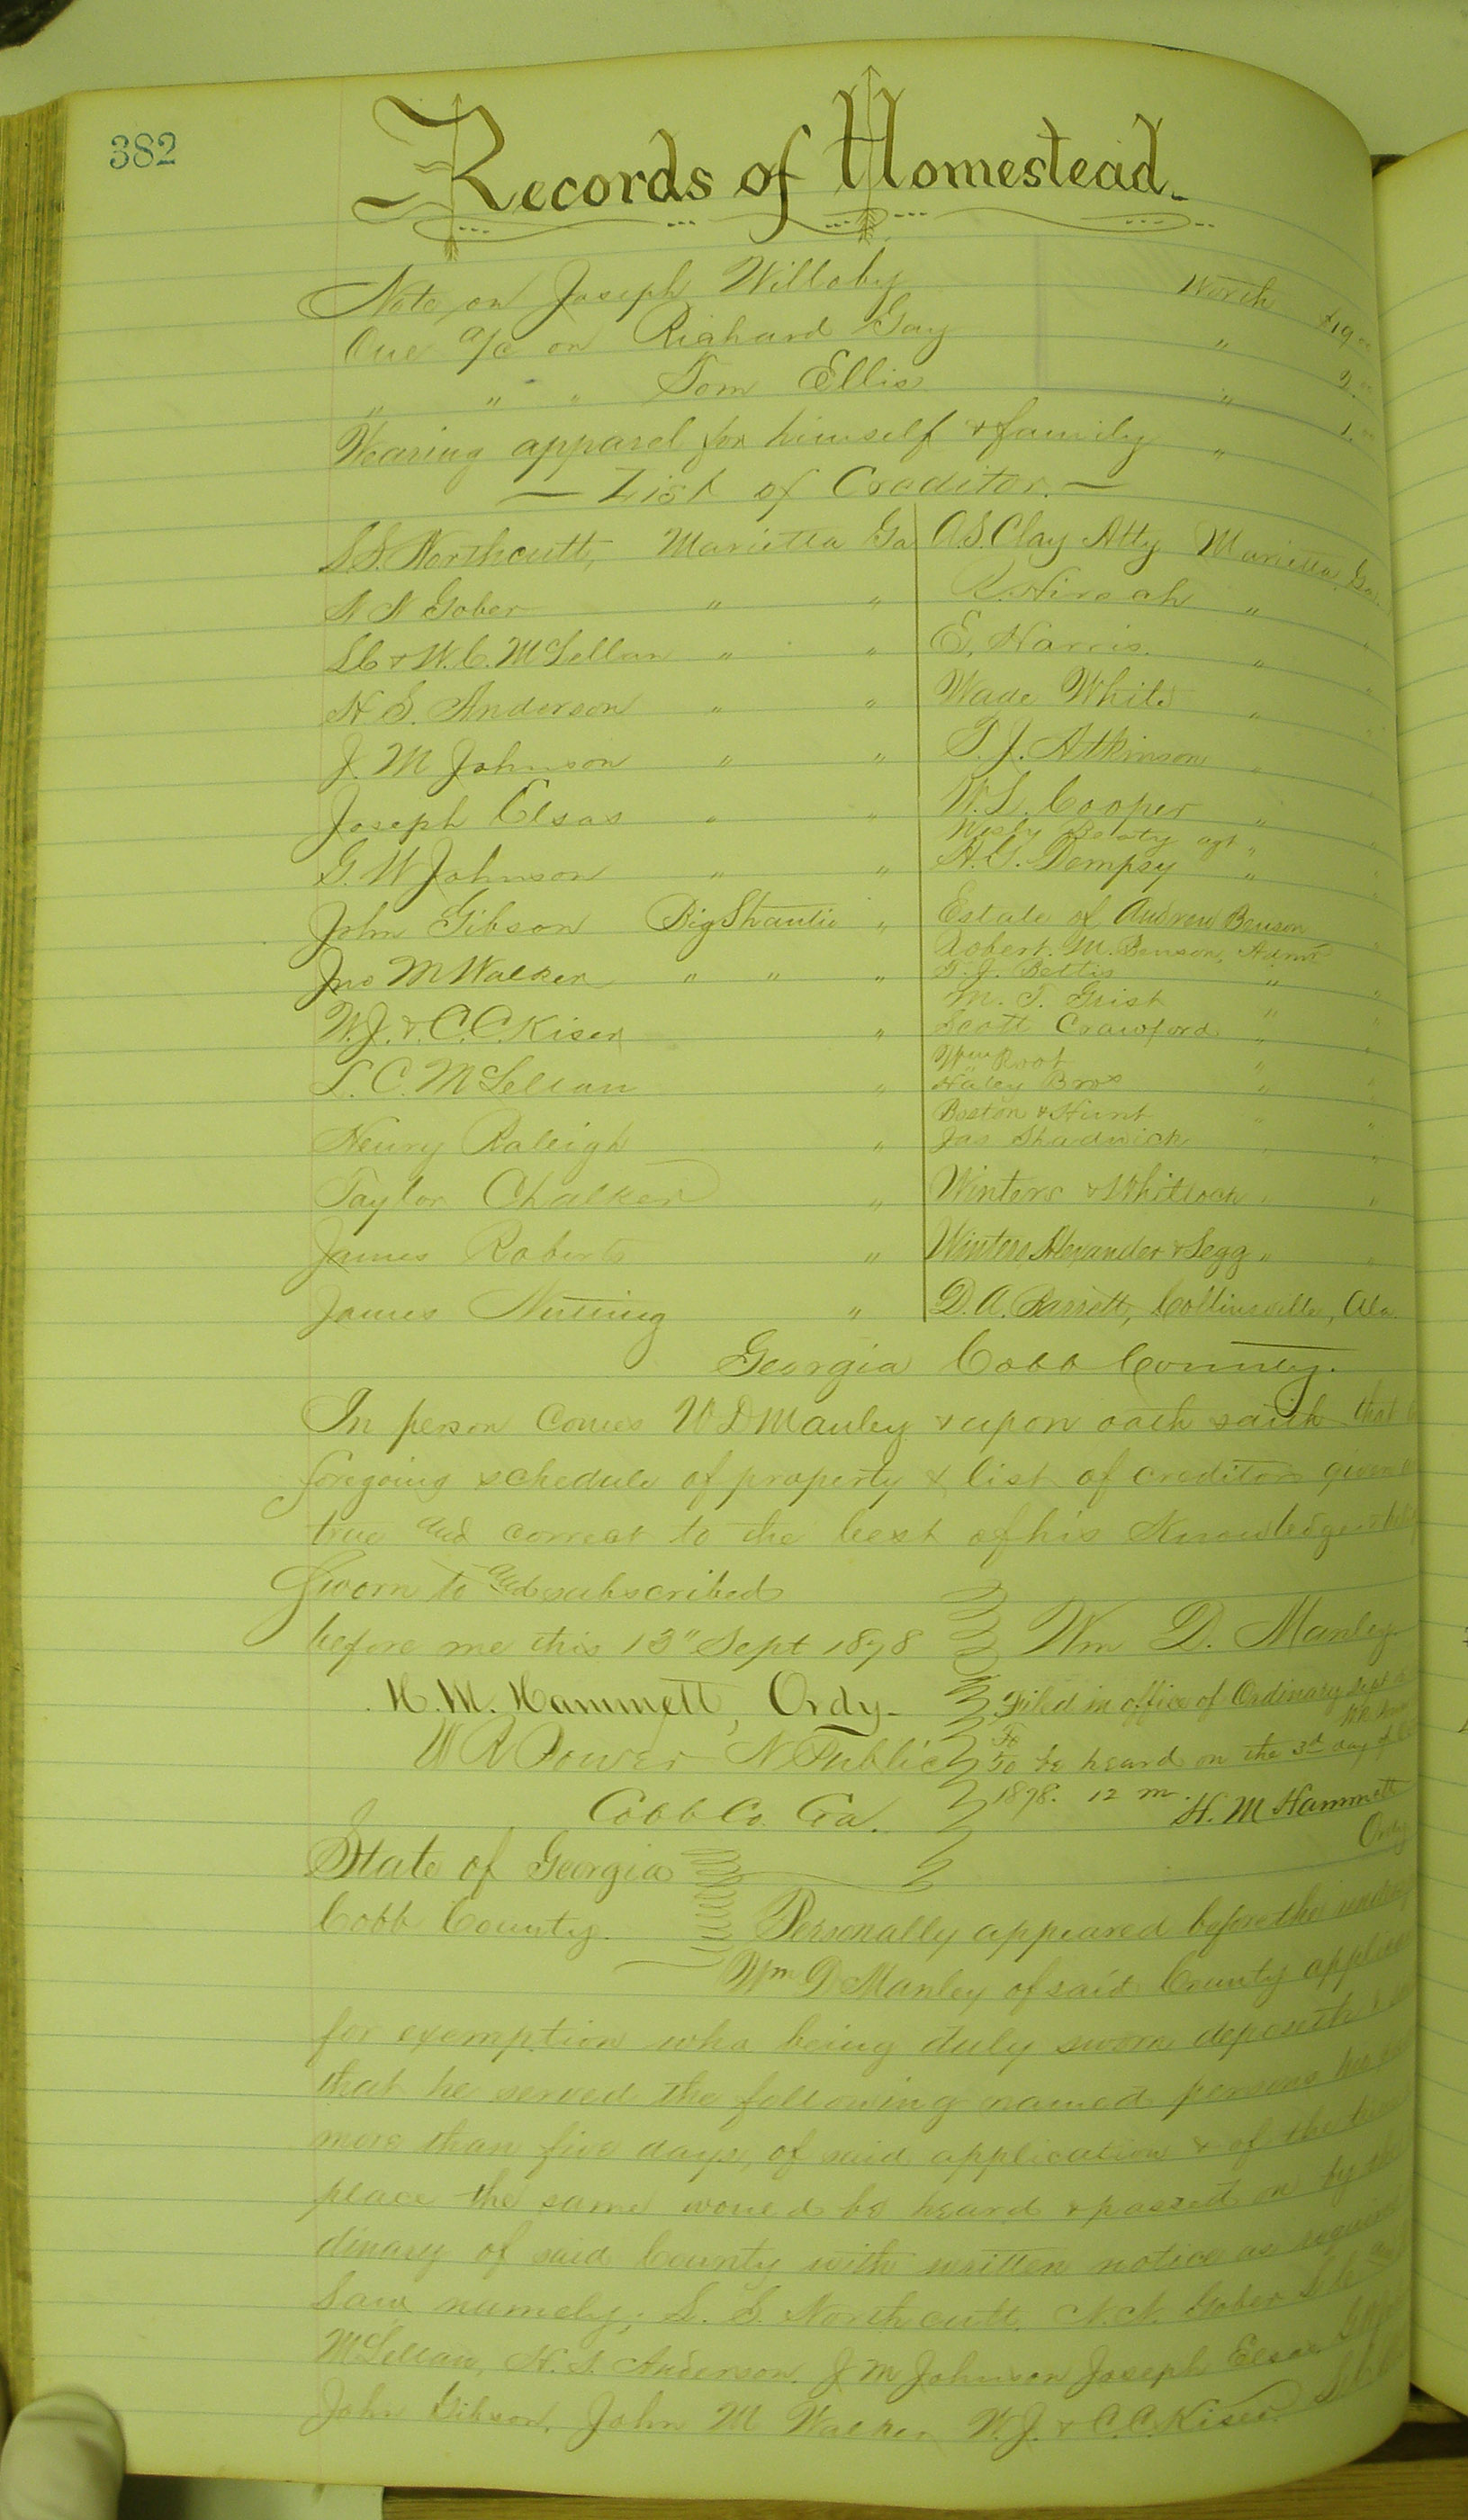 382
Records of Homestead.
Note on Joseph Willoby Worth $19.00
One a/c on Richard Gay " 2.00
" " " Tom Ellis " 1.00
Wearing apparel for himself & family "
— List of Creditor. —
S.S. Northcutt, Marietta Ga A.S. Clay Atty Marietta Ga.
N N Gober " " R. Hirsah "
LC & W.C. McLellan " " E, Harris. " "
H S. Anderson " " Wade White " "
J. M Johnson " " T. J. Atkinson "
Joseph Elsas " " W.L. Cooper "
Wesly Beaty agt " "
G. W Johnson " " A.G. Dempsy " "
John Gibson Big Shantie " Estate of Andrew Benson "
Robert. M. Benson, Admr
Jno M Walker " " " G. J. Bettis " "
M. T. Grist " "
W.J. & C.C. Kiser " Scott Crawford " "
Wm Root "
L. C. McLellan " Haley Bros " "
Boston & Hunt " "
Henry Raleigh " Jas Shadwick " "
Taylor Chalker " Winters & Whitlock " "
James Roberts " Winters Alexander & Legg " "
James Nutting " D.A. Barrett, Collinsville, Ala.
Georgia Cobb County.
In person comes W D Manley & upon oath saith that
foregoing schedule of property & list of creditors given
true and correct to the best of his Knowledge &
Sworn to and subscribed
before me this 13" Sept 1878 Wm D. Manley
H. M. Hammett, Ordy- Filed in office of Ordinary Sept
W R Power N Public To be heard on the 3d day of
1878. 12 m.
Cobb Co. Ga. H. M Hammett
Ordy
State of Georgia
Cobb County. Personally appeared before the
Wm D Manley of said County
for exemption who being duly sworn deposeth &
that he served the following named persons
more than five days, of said application & of the
place the same would be heard & passed on by the
dinary of said County with written notice as
Law namely; S. S. Northcutt. N. N. Gober LC
McLellan, H. S. Anderson. J M Johnson Joseph Elsas
John Gibson, John M Walker W. J. & C. C. Kiser